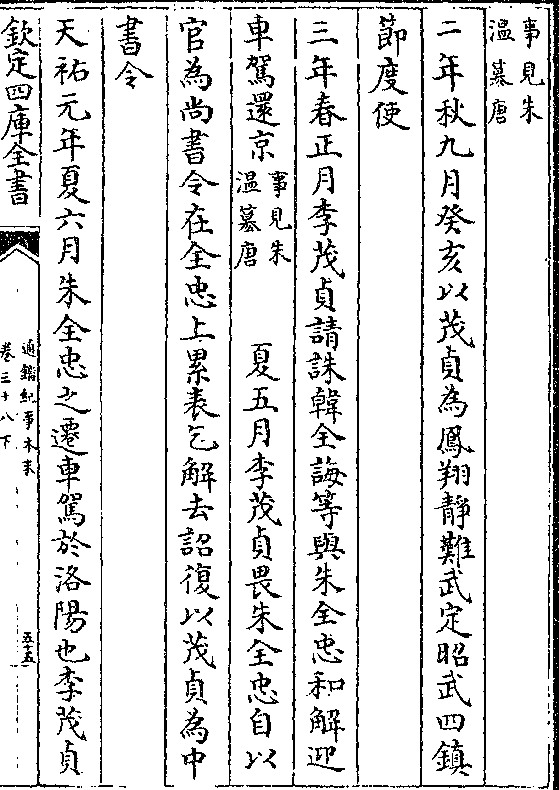 事見朱
温篡唐
二年秋九月癸亥以茂貞為鳳翔靜難武定昭武四鎮
節度使
三年春正月李茂貞請誅韓全誨等與朱全忠和解迎
車駕還京事見朱温簒唐　夏五月李茂貞畏朱全忠自以
官為尚書令在全忠上累表乞解去詔復以茂貞為中
書令
天祐元年夏六月朱全忠之遷車駕於洛陽也李茂貞
欽定四庫全書
通鑑紀事本末
卷三十八下
五十五